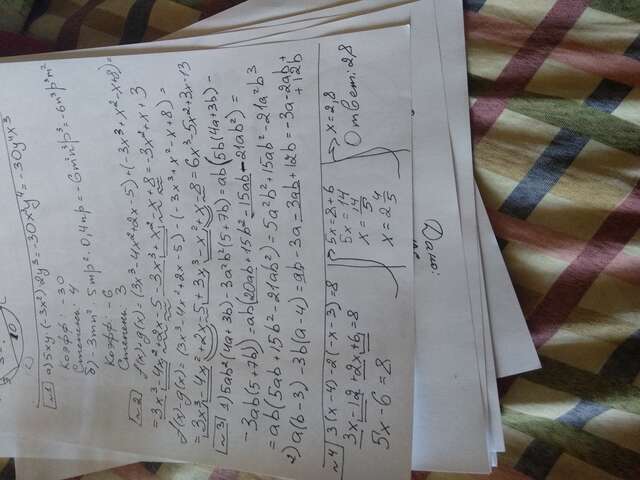 10
№1 a) 5xy · (-3x²) · 2y³ = -30x³y⁴ = -30y⁴x³
Коэфф: -30
Степень: 4
б) -3mn² · 5mp² · 0,4np = -6m²n³p³ = -6n³p³m²
Коэфф: -6
Степень: 3
№2 f(x)+g(x) = (3x³-4x²+2x-5)+(-3x³+x²-x+8) =
= 3x³-4x²+2x-5-3x³+x²-x+8 = -3x²+x+3
f(x)-g(x) = (3x³-4x²+2x-5)-(-3x³+x²-x+8) =
= 3x³-4x²+2x-5+3x³-x²+x-8 = 6x³-5x²+3x-13
№3 1) 5ab²(4a+3b)-3a²b²(5+7b) = ab(5b(4a+3b)-
-3ab(5+7b)) = ab(20ab+15b²-15ab-21ab²) =
= ab(5ab+15b²-21ab²) = 5a²b²+15ab²-21a²b³
2) a(b-3)-3b(a-4) = ab-3a-3ab+12b = -3a-2ab+
+12b
№4 3(x-4)-2(-x-3)=8
3x-12+2x+6=8
5x-6=8
5x=8+6
5x=14
x=14/5
x=2 4/5
x=2,8
Ответ: 2,8
Дано: